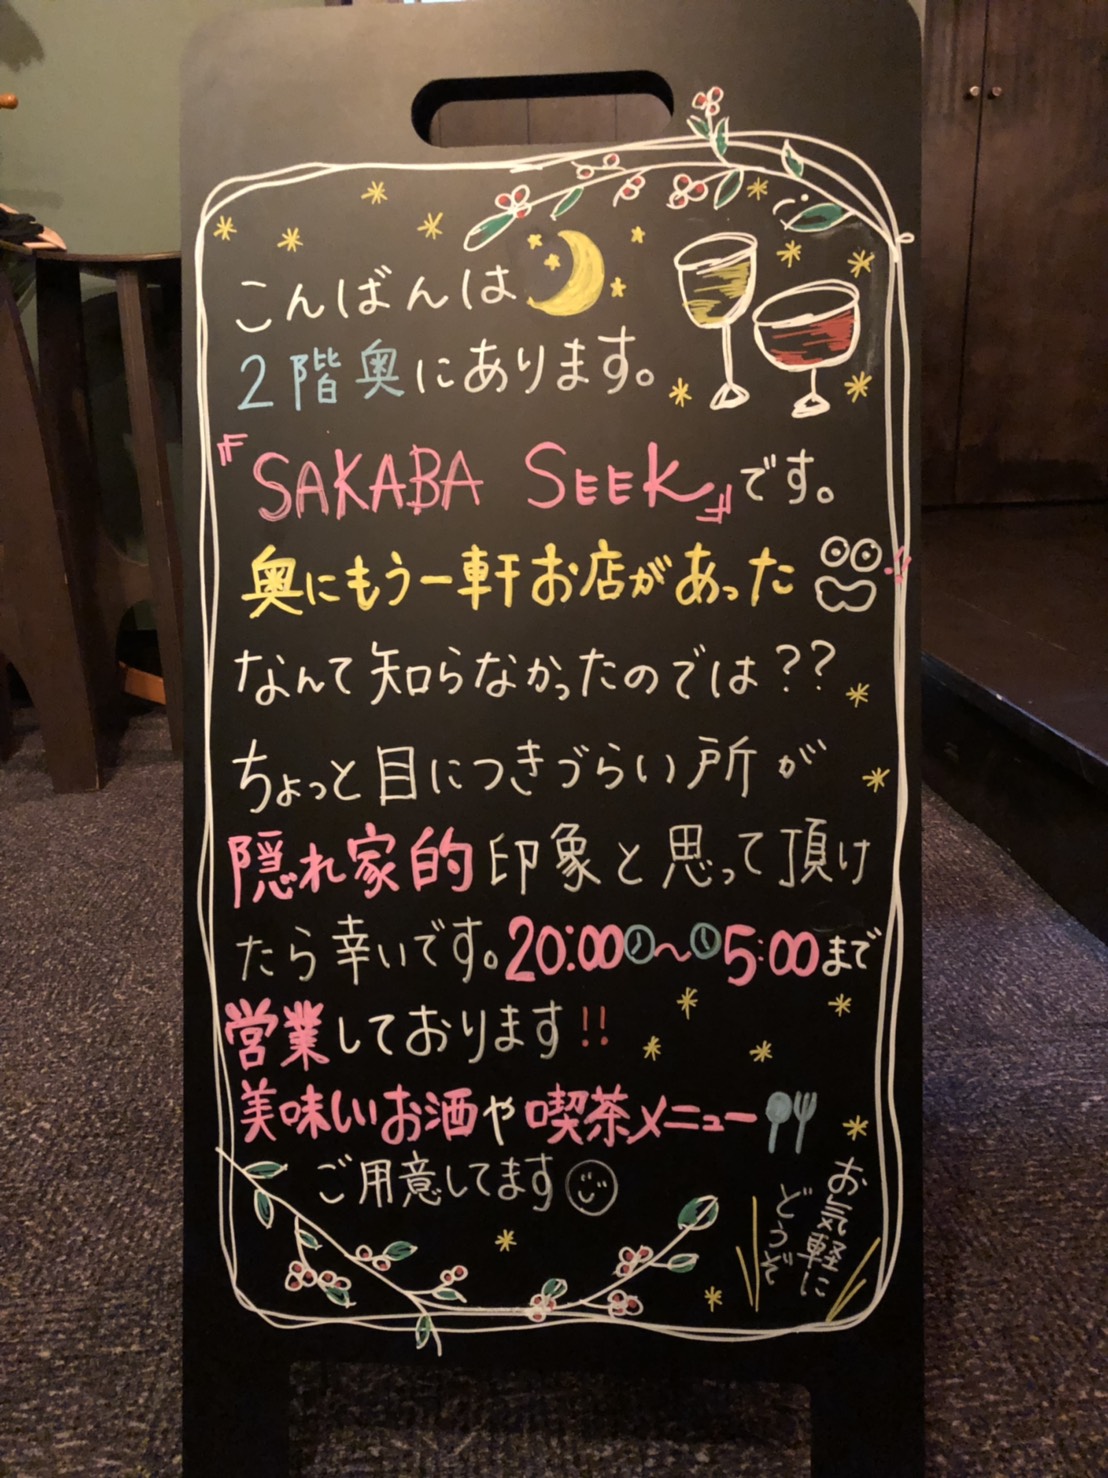 こんばんは
2階奥にあります。
『SAKABA SEEK』です。
奥にもう一軒お店があった
なんて知らなかったのでは??
ちょっと目につきづらい所が
隠れ家的印象と思って頂け
たら幸いです。20:00〜5:00まで
営業しております!!
美味しいお酒や喫茶メニュー
ご用意してます
お気軽に
どうぞ